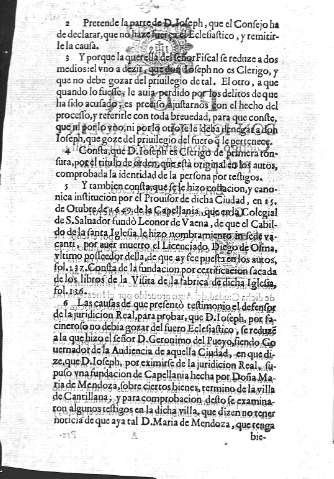 2 Pretende la parte de D. Ioseph, que el Consejo ha
de declarar, que no haze fuerça el Eclesiastico, y remitir-
le la causa.
3 Y porque la querella del señor Fiscal se reduze a dos
medios: el vno a dezir, que don Ioseph no es Clerigo, y
que no debe gozar del priuilegio de tal. El otro, a que
quando lo fuesse, le auia perdido por los delitos de que
ha sido acusado; es preciso ajustarnos con el hecho del
processo, y referirle con toda breuedad, para que conste,
que ni por lo vno, ni por lo otro se le debe denegar a don
Ioseph, que goze del priuilegio del fuero que le pertenece.
4 Consta, que D. Ioseph es Clerigo de primera ton-
sura, por el titulo de orden, que està original en los autos,
comprobada la identidad de la persona por testigos.
5 Y tambien consta, que se le hizo colacion, y cano-
nica institucion por el Prouisor de dicha Ciudad, en 15.
de Octubre de de la Capellania, que en la Colegial
de S. Saluador fundò Leonor de Vaena, de que el Cabil-
do de la santa Iglesia le hizo nombramiento in sede va-
canti, por auer muerto el Licenciado Diego de Osma,
vltimo posseedor della, de que ay fee puesta en los autos,
fol. 137. Consta de la fundacion por certificacion sacada
de los libros de la Visita de la fabrica de dicha Iglesia,
fol. 136.
6 Las causas de que presentò testimonio el defensor
de la juridicion Real, para probar, que D. Ioseph, por fa-
cineroso no debia gozar del fuero Eclesiastico, se reduzē
a la que hizo el señor D. Geronimo del Pueyo, siendo Go
uernador de la Audiencia de aquella Ciudad, en que di-
ze, que D. Ioseph, por eximirse de la juridicion Real, su-
puso vna fundacion de Capellania hecha por Doña Ma-
ria de Mendoza, sobre ciertos bienes, termino de la villa
de Cantillana; y para comprobacion desto se examina-
ron algunos testigos en la dicha villa, que dizen no tener
noticia de que aya tal D. Maria de Mendoza, que tenga
bie-